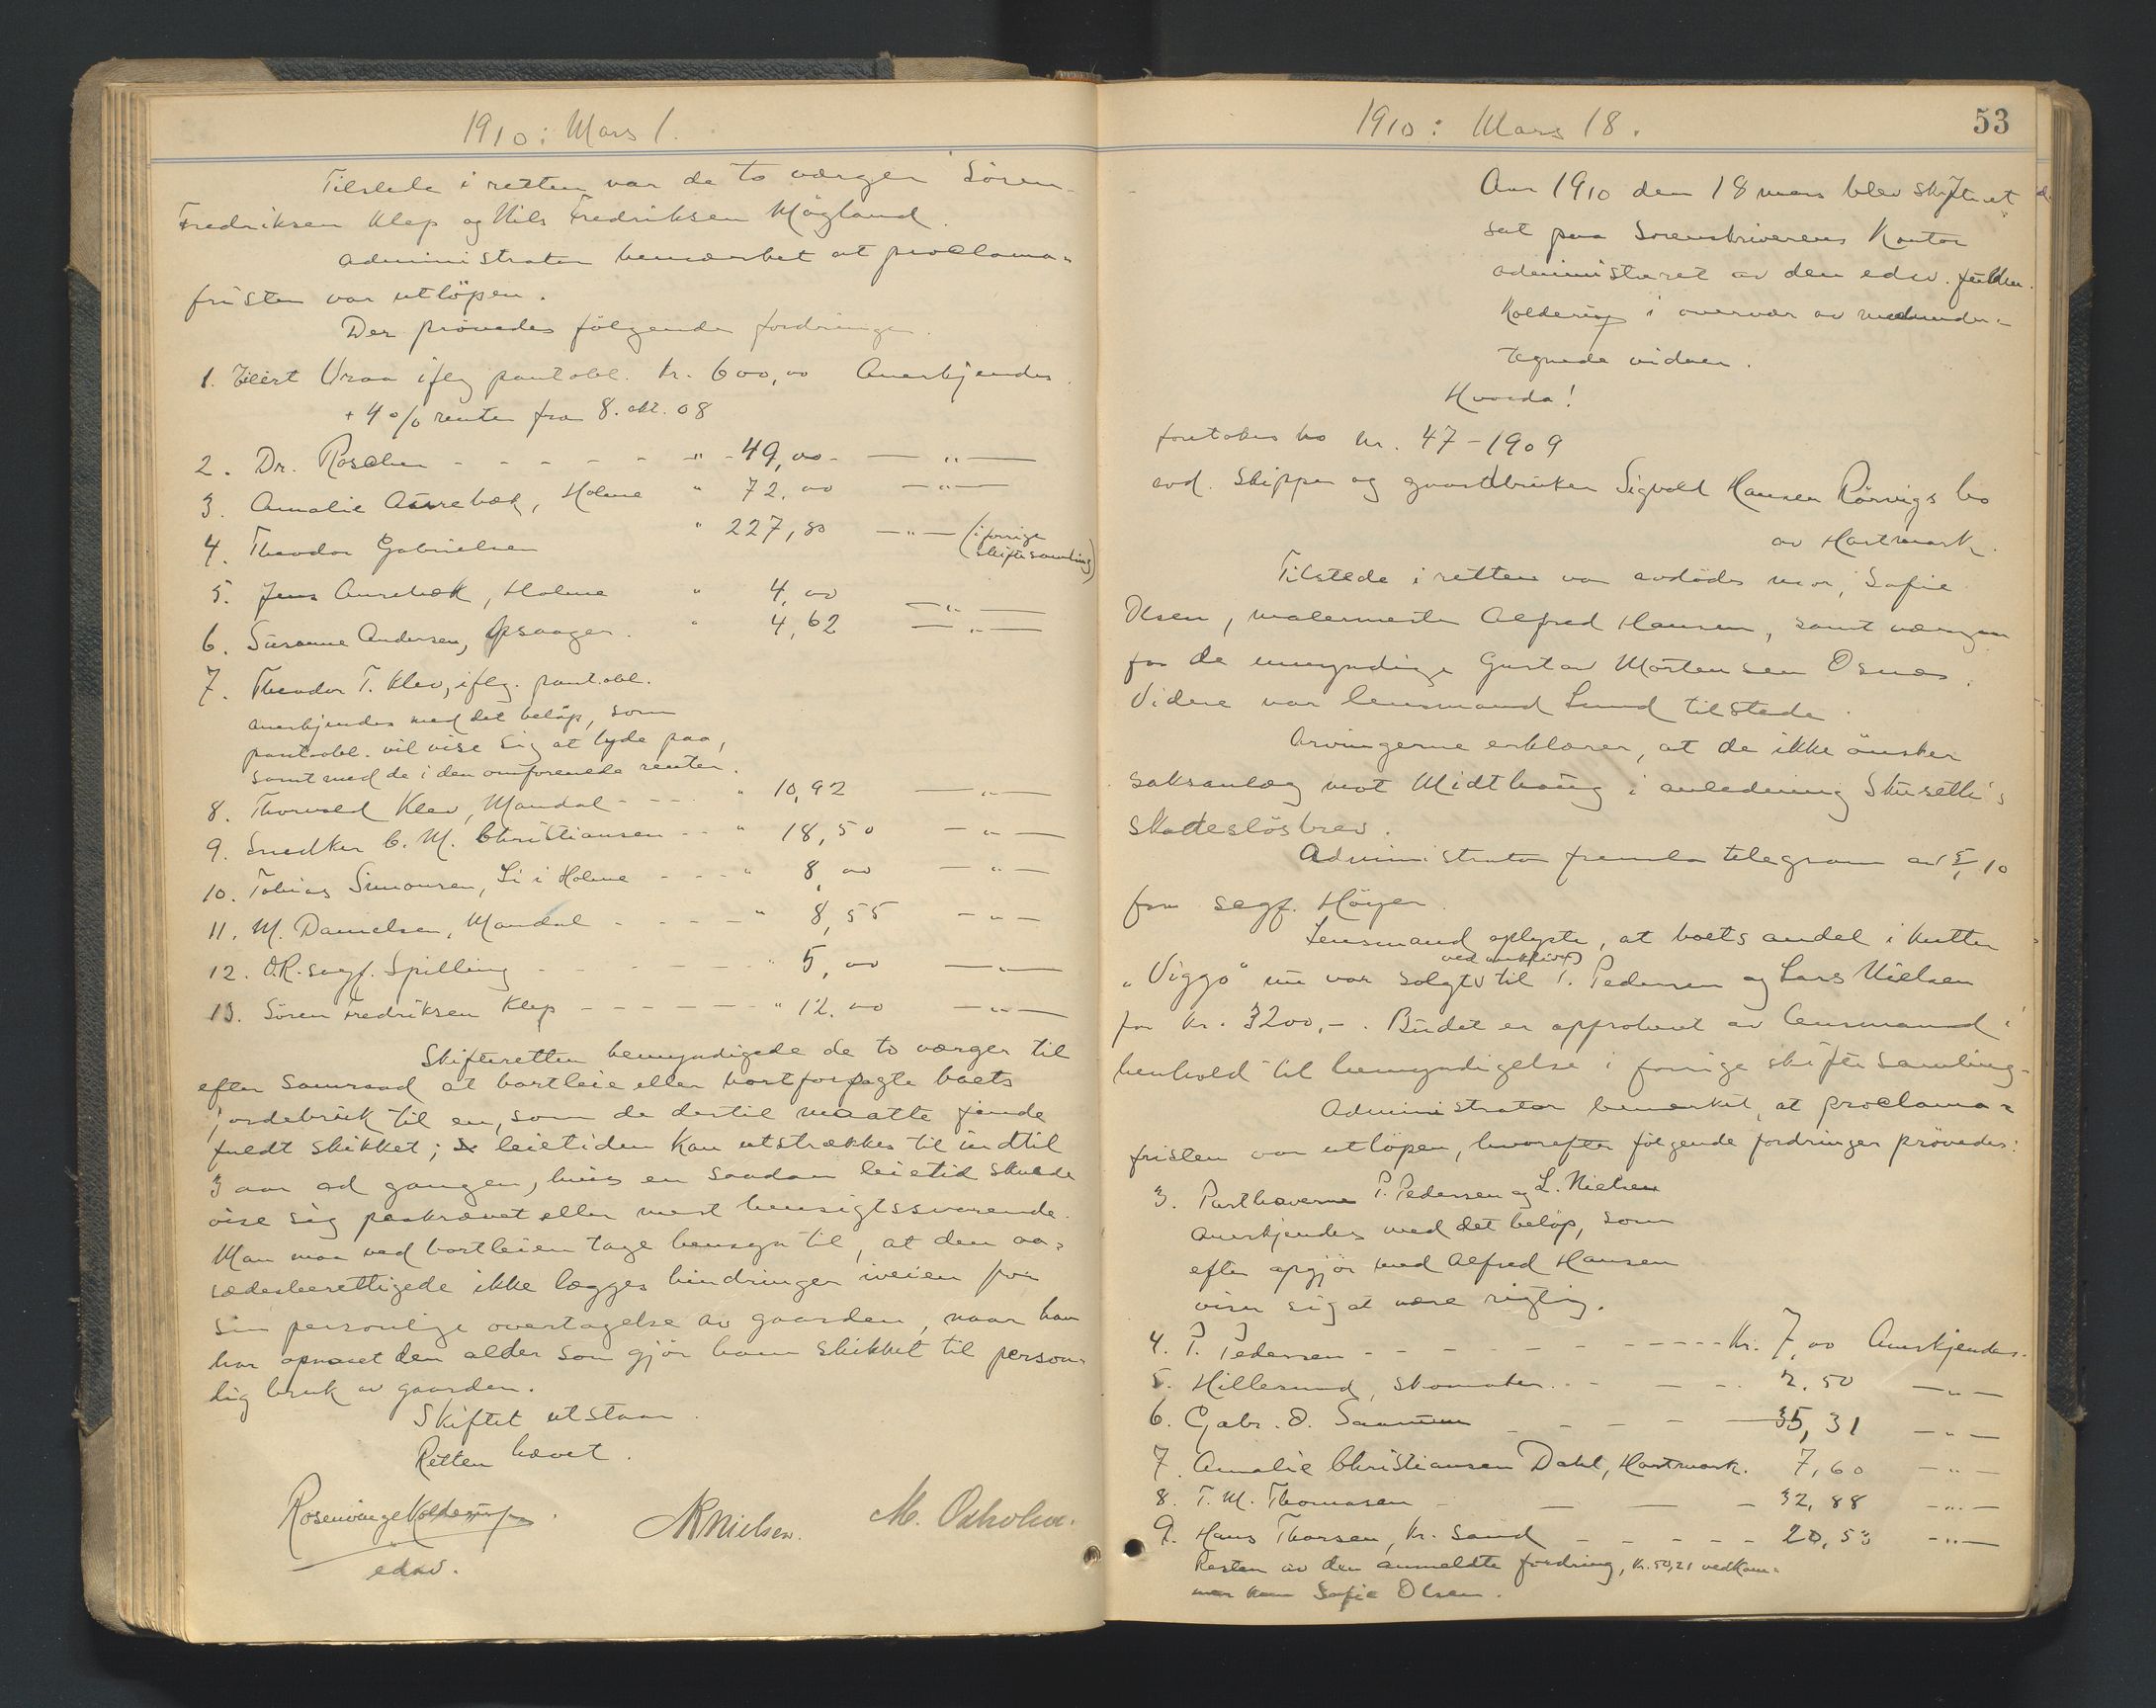 1910: Mars 1.
Tilstede i retten var de to værger Sören
Fredriksen Klep og Nils Fredriksen Mögland.
Administrator bemærket at proclama-
fristen var utlöpen.
Der prövedes fölgende fordringer.
1. Zeiert Uraa iflg pantobl. kr. 600,00 Anerkjendes.
+ 4 % renter fra 8. okt. 08
2. Dr. Roscher - - - - - - " - 49,00 - — " —
3. Amalie Aurebæk, Holme " 72,00 — " —
4. Theodor Gabrielsen " 227,80 — " — (i forrige
skiftesamling)
5. Jens Aurebæk, Holme " 4,00 — " —
6. Susanne Andersen, Opsaager. " 4,62 — " —
7. Theodor T. Klev, iflg. pantobl.
anerkjendes med det belöp, som
pantobl. vil vise sig at lyde paa,
samt med de i den omforenede renter.
8. Thorvald Klev, Mandal - - - " 10,92 — " —
9. Snedker C. M. Christiansen - - " 18,50 — " —
10. Tobias Simonsen, Li i Holme - - - " 8,00 — " —
11. M. Danielsen, Mandal - - - - " 8,55 — " —
12. O.R. sagf. Spilling - - - - - " 5,00 — " —
13. Sören Fredriksen Klep - - - - - - " 12,00 — " —
Skifteretten bemyndigede de to værger til
efter samraad at bortleie eller bortforpagte boets
jordebruk til en, som de dertil maatte finde
fuldt skikket; leietiden kan utstrækkes til indtil
3 aar ad gangen, hvis en saadan leietid skulde
vise sig paakrævet eller mest hensigtssvarende.
Man maa ved bortleien tage hensyn til, at den aa-
sædesberettigede ikke lægges hindringer iveien for
sin personlige overtagelse av gaarden, naar han
har opnaaet den alder som gjör ham skikket til person-
lig bruk av gaarden.
Skiftet utstaar.
Retten hævet.
Rosenvinge Kolderup.
edsv.
NRNielsen.
M. Oxholm.
1910: Mars 18.
53
Aar 1910 den 18 mars blev skifteret
sat paa Sorenskriverens Kontor
administreret av den edsv. fuldm.
Kolderup i overvær av medunder-
tegnede vidner.
Hvorda!
foretokes bo nr. 47 - 1909
avd. Skipper og gaardbruker Sigvald Hansen Rörvigs bo
av Hartmark.
Tilstede i retten var avdödes mor, Sofie
Olsen, malermester Alfred Hansen, samt værgen
for de umyndige Gustav Mortensen Osnes.
Videre var lensmand Lund tilstede.
Arvingerne erklærer, at de ikke önsker
saksanlæg mot Midthaug i anledning
skadeslösbrev.
Administrator fremla telegram av
fra sagf. Höyer.
Lensmand oplyste, at boets andel i kutter
"Viggo" nu var solgt ved auktion til P. Pedersen og Lars Nielsen
for kr. 3200,-. Budet er approbert av lensmand i
henhold til bemyndigelse i forrige skiftesamling.
Administrator bemærket, at proclama-
fristen var utlöpen, hvorefter fölgende fordringer prövedes:
3. Parthaverne P. Pedersen og L. Nielsen
anerkjendes med det belöp, som
efter opgjör med Alfred Hansen
viser sig at være rigtig.
4. P. Pedersen - - - - - - - - - - Kr. 7,00 Anerkjendes.
5. Hillesund, skomaker. - - - - 2.50 — " —
6. Gabr. O. Saanum - - - - 35,31 — " —
7. Amalie Christiansen Dahl, Hartmark. 7,60 — " —
8. T. M. Thomasen - - - - 32,88 — " —
9. Hans Thorsen, Kr. sand - - - - - 20,53 — " —
Resten av den anmeldte fordring, kr. 50,21 vedkom-
mer kun Sofie Olsen.